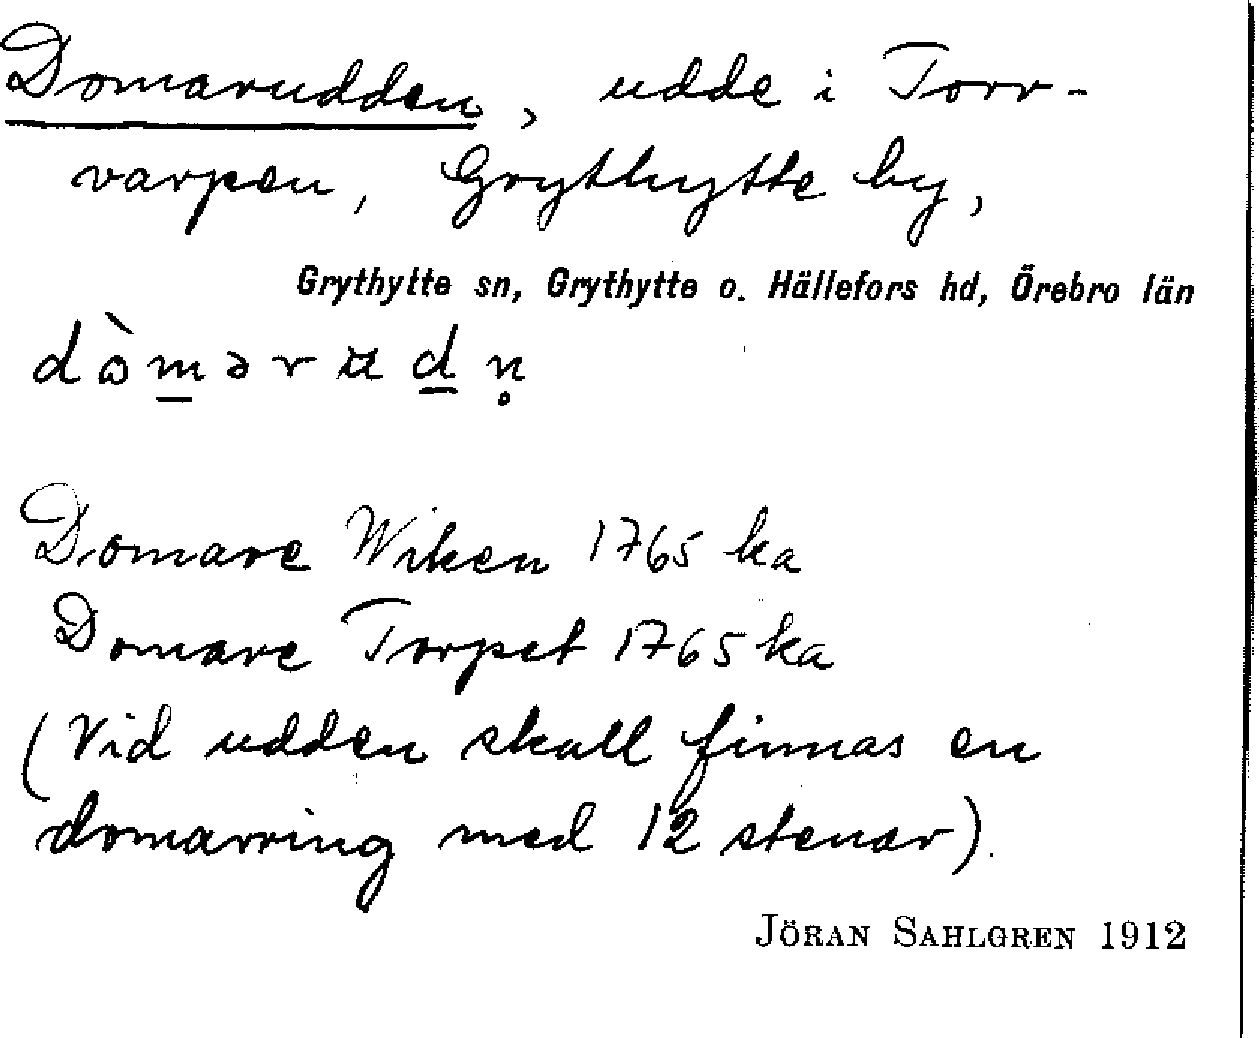 Domarudden, udde i Torr-
varpen, Grythytte by,
Grythytte sn, Grythytte o. Hällefors hd, Örebro län
Domare Wiken 1765 ka
Domare Torpet 1765 ka
(Vid udden skall finnas en
domarring med 12 stenar).
JÖRAN SAHLGREN 1912